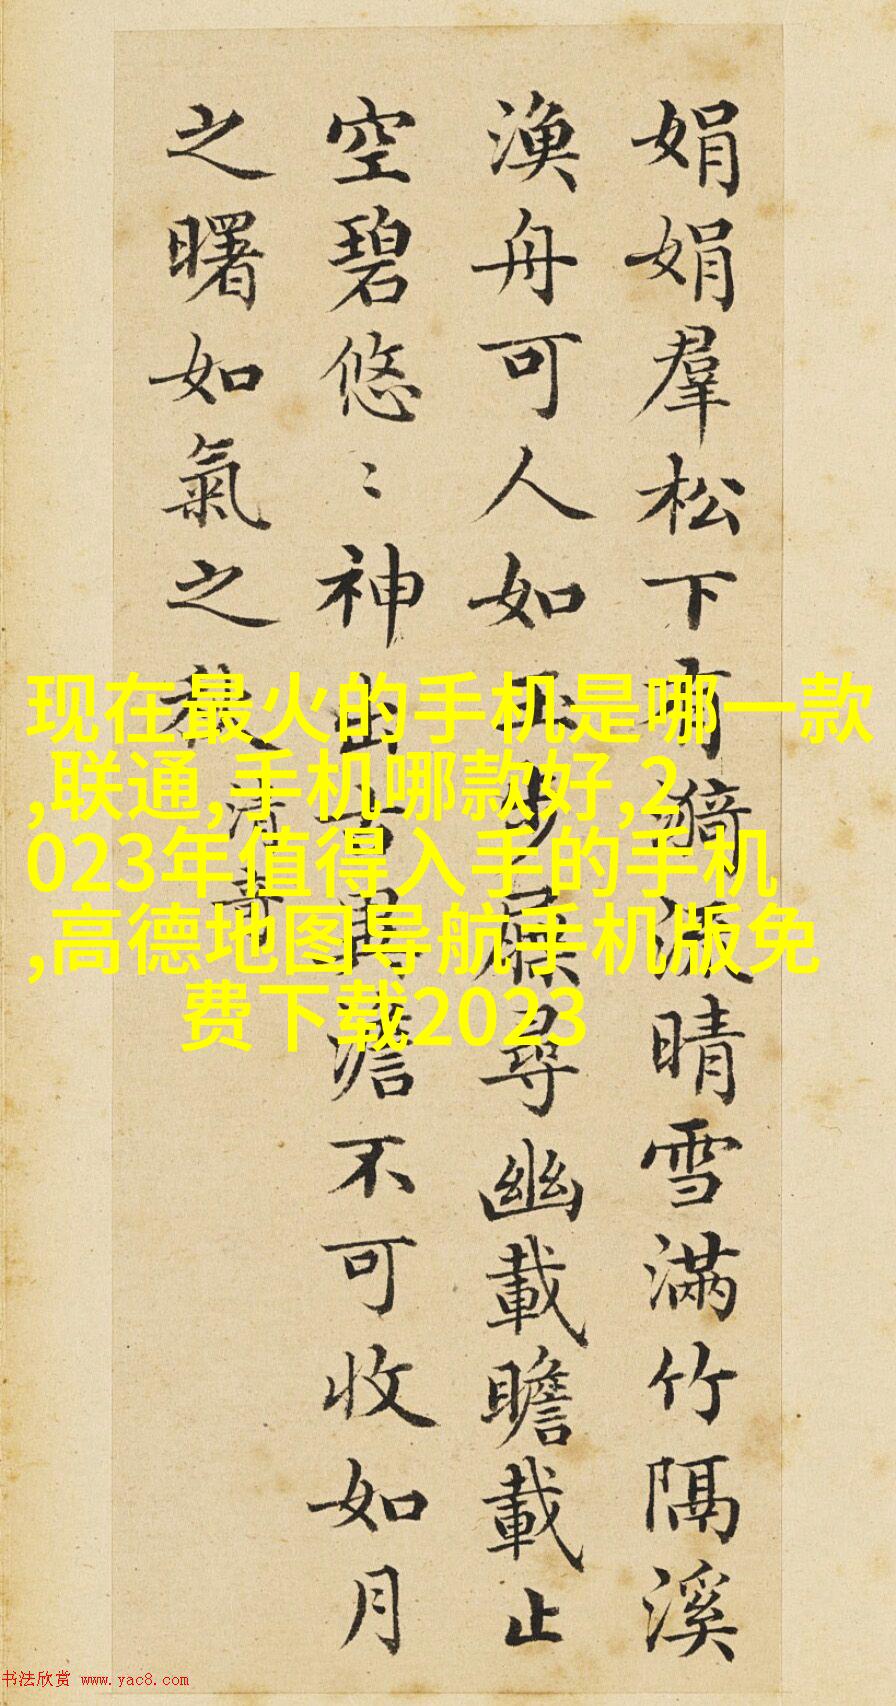 娟娟羣松下有漪流晴雪滿竹隔溪
漁舟可人如玉步屧尋幽載瞻載止
空碧悠〻神出古異澹不可收如月
之曙如氣之秋
清奇
现在最火的手机是哪一款
,联通,手机哪款好,2
023年值得入手的手机
,高德地图导航手机版免
费下载2023
书法欣赏 www.yac8.com